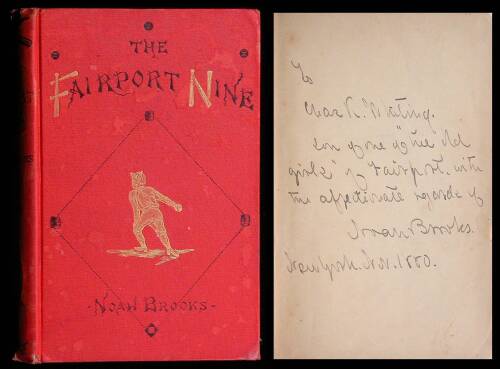 THE
FAIRPORT NINE
-NOAH BROOKS-
To
Chas R.
son of one of "the old
girls" of Fairport, with
the affectionate regards of
Noah Brooks.
New York. Nov. 1880.